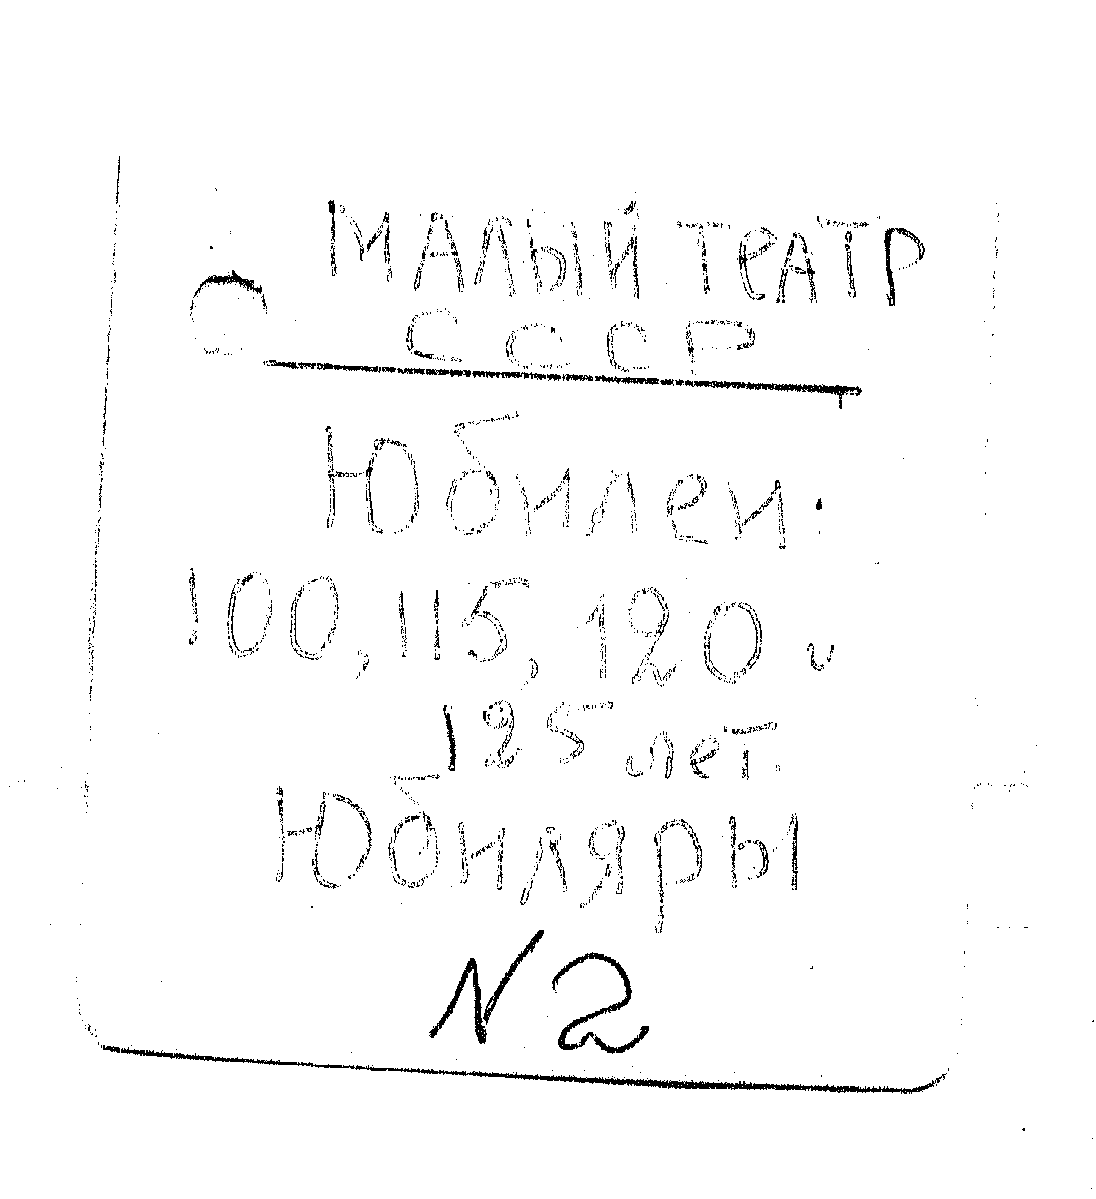 МАЛЫЙ ТеАТР
СССР
Юбилеи:
100, 115, 120 и
125 лет.
Юбиляры
N 2